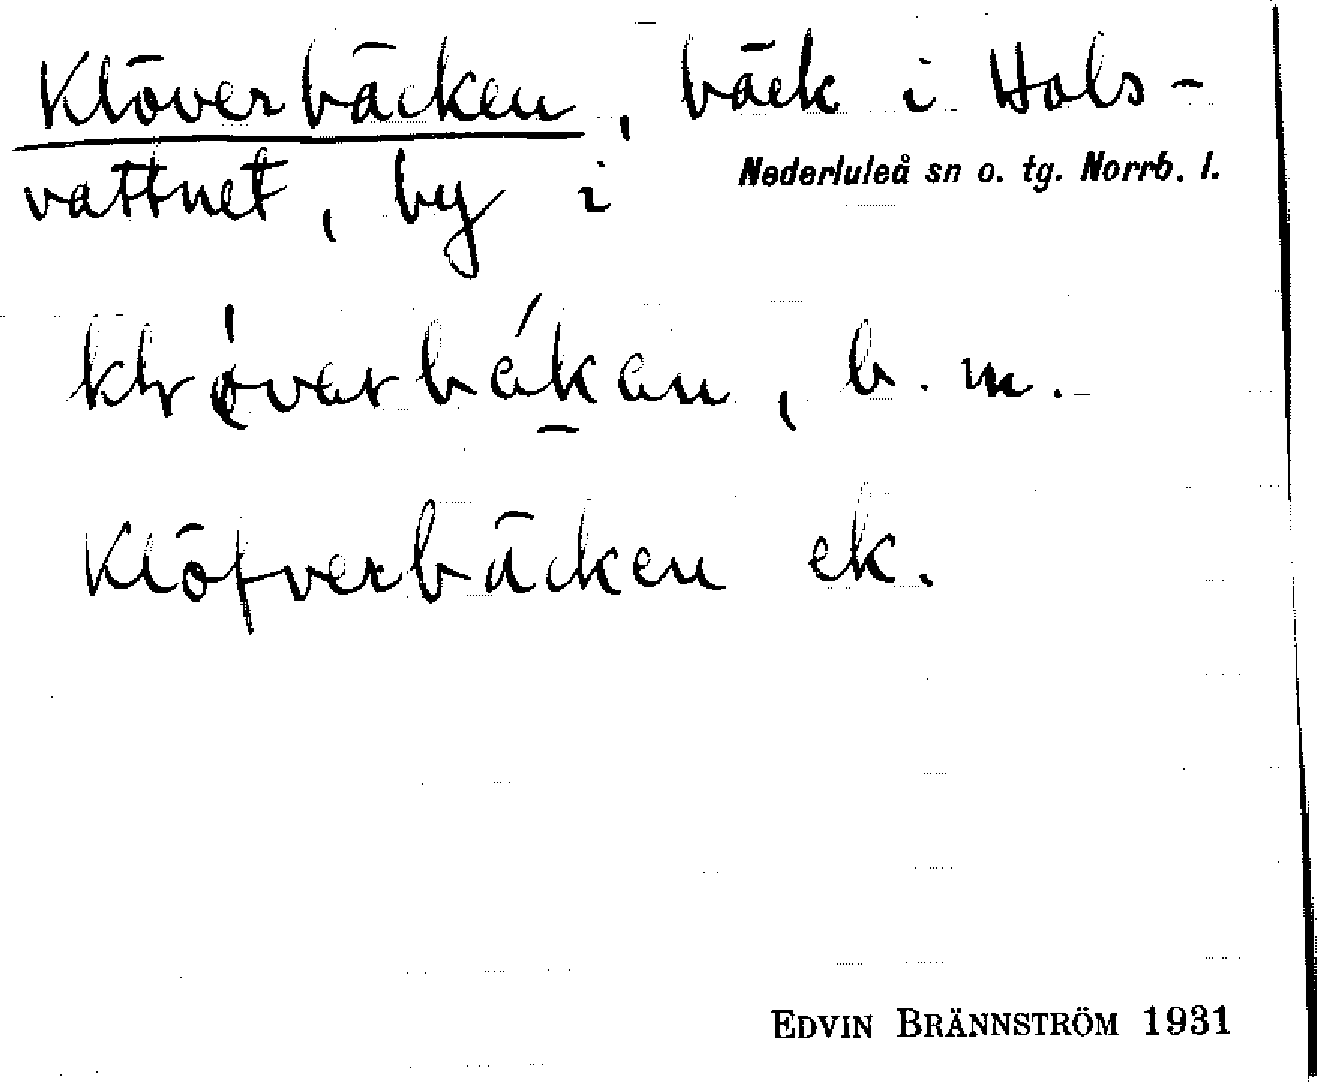 Klöverbäcken, bäck i Hols-
vattnet, by i Nederluleå sn o. tg. Norrb. l.
b. m.
Klöfverbäcken ek.
EDVIN BRÄNNSTRÖM 1931